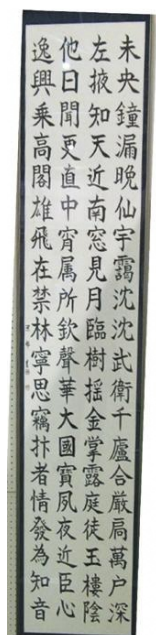 未央鐘漏晚仙宇靄沈沈武衛千廬合厳扃萬户深
左掖知天近南窓見月臨樹揺金掌露庭徒玉樓陰
他日聞更直中宵属所欽聲華大國寳夙夜近臣心
逸興乗高閣雄飛在禁林寧思竊抃者情發為知音